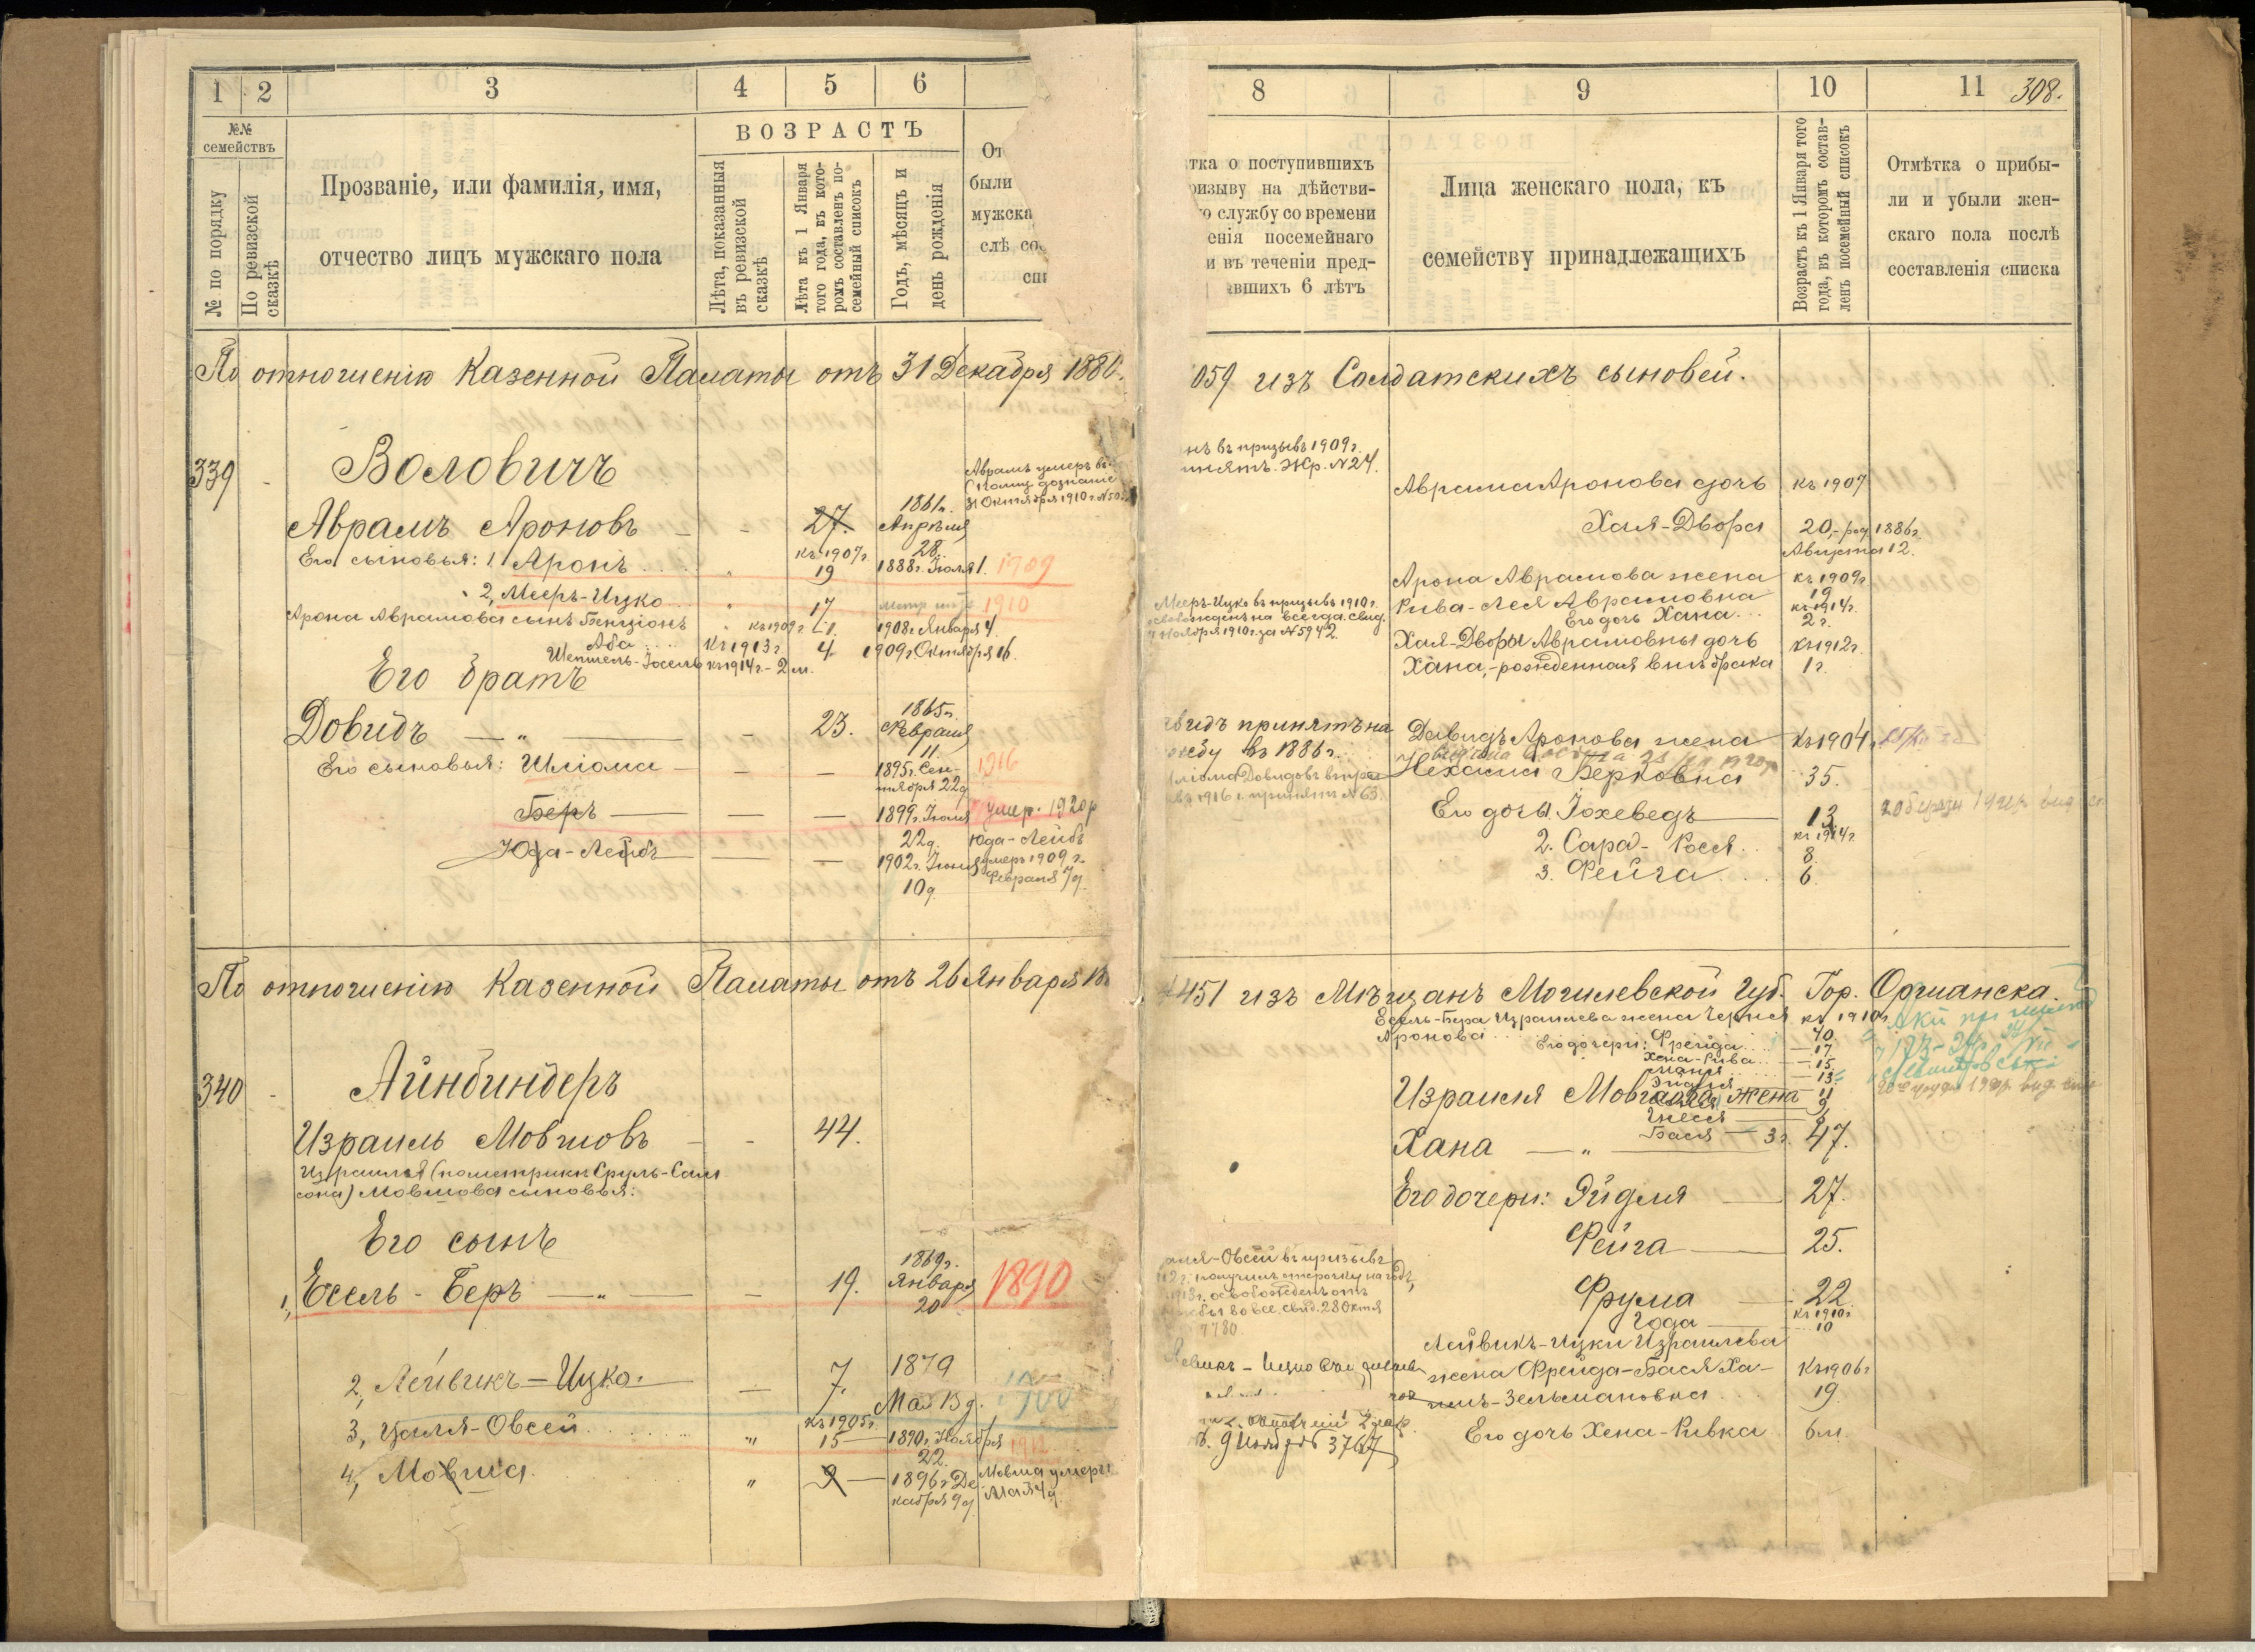 1 2 3 4 5 6
№№ семействъ
№ по порядку
По ревизской сказкѣ
Прозваніе, или фамилія, имя,
отчество лицъ мужскаго пола
ВОЗРАСТЪ
Лѣта, показанныя въ ревизской сказкѣ
Лѣта къ 1 Января того года, въ кото-ромъ составленъ по-семейный списокъ
Годъ, мѣсяцъ и день рожденія
От
были
мужска
слѣ со
спи
По отношенію Казенной Палаты отъ 31 Декабря 188
339 - Воловичъ
Аврамъ умеръ
дознаніе
31 Октября 1910 г. №
Аврамъ Ароновъ - - 27. 1861 г. Апрѣля 28.
Его сыновья: 1, Аронъ " къ 1907 г. 19 1888 г. Іюля 1. 1909
2, Мееръ-Ицко " 17 1910
Арона Аврамова сынъ Бенціонъ " къ 1909 г. 1. 1908 г. Января 4.
Аба къ 1913 г. 4 1909 г. Октября 16.
Шепшель-Іосель къ 1914 г. - 2 м.
Его братъ
Довидъ — " — - 23. 1865 г. Февраля 11.
Его сыновья: Шліома — — — 1895 г. Сен-тября 22 д. 1916
Беръ — — — 1899 г. Іюля 22 д. умер. 1920 р
Юда-Лейбъ — — — 1902 г. Іюня 10 д.
Юда-Лейбъ
умеръ 1909 г.
Февраля 7 д.
По отношенію Казенной Палаты отъ 26 Января 18
340 - Айнбиндеръ
Израиль Мовшовъ - - 44.
Израиля (по метрики Сруль-Сам
сона) Мовшова сыновья:
Его сынъ
1, Ессель-Беръ — " — — 19. 1869 г. Января 20 1890
2, Лейвикъ-Ицко. — 7. 1879 Мая 13 д. 1900
3, Цаля-Овсей " къ 1905 г. 15 — 1890 г. Ноября 22. 1912
4, Мовша. " 9 — 1896 г. Де
кабря 9 д.
Мовша умеръ
Мая 4 д.
8 9 10 11 308.
тка о поступившихъ
ризыву на дѣйстви-
ю службу со времени
енія посемейнаго
и въ теченіи пред-
авшихъ 6 лѣтъ
Лица женскаго пола, къ
семейству принадлежащихъ
Возрастъ къ 1 Января того года, въ которомъ состав-ленъ посемейный списокъ
Отмѣтка о прибы-
ли и убыли жен-
скаго пола послѣ
составленія списка
059 изъ Солдатскихъ сыновей.
нъ въ призывъ 1909 г.
инятъ. Жр. №24.
Аврама Аронова дочь къ 1907
Хая-Двора 20, - род. 1886 г.
Августа 12.
Арона Аврамова жена къ 1909 г.
Рива-Лея Аврамовна 19
Его дочь Хана къ 1914 г. 2 г.
Мееръ-Ицко въ призывъ 1910 г.
освобожденъ на всегда. Свид.
Ноября 1910 г. за №5942.
Хаи-Дворы Аврамовны дочь къ 1912 г.
Хана, - рожденная внѣ брака 1 г.
видъ принятъ на
жбу въ 1886 г.
Давида Аронова жена къ 1904
Нехама Берковна 35.
ліома Довидовъ въ при
въ 1916 г. принятъ №63.
Его дочь 1. Іохеведъ — 13
2. Сара-Рося къ 1914 г. 8.
3. Фейга 6.
4451 изъ Мѣщанъ Могилевской Губ. Гор. Оршанска.
Есель-Бера Израилева жена Черня къ 1910 г.
Аронова 40
Его дочери: Фрейда — 17
Хена-Рива — 15
— 13
11
9
Израиля Мовшова жена
Бася — 3 г.
Хана — " — 47.
Его дочери: Эйдля — 27.
Фейга — 25.
Фрума — 22
Года — къ 1910 г. 10
аля-Овсей въ призывъ
12 г. получилъ отсрочку на годъ,
1913 г. освобожденъ отъ
жбы во все. свид. 28 Октя
7780
Лейвикъ-Ицки Израилева
жена Фрейда-Бася Ха- къ 1906 г.
имъ-Зельмановна 19
Его дочь Хена-Ривка 6 м.
3767